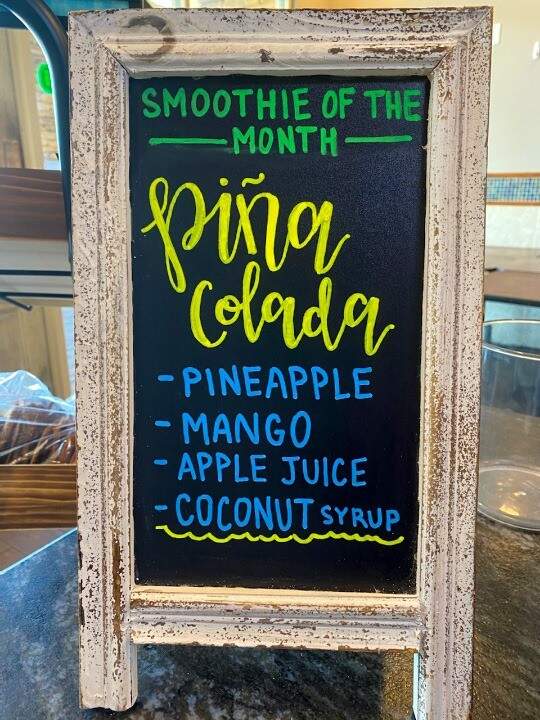 SMOOTHIE OF THE
MONTH
piña
Colada
- PINEAPPLE
- MANGO
- APPLE JUICE
- COCONUT SYRUP